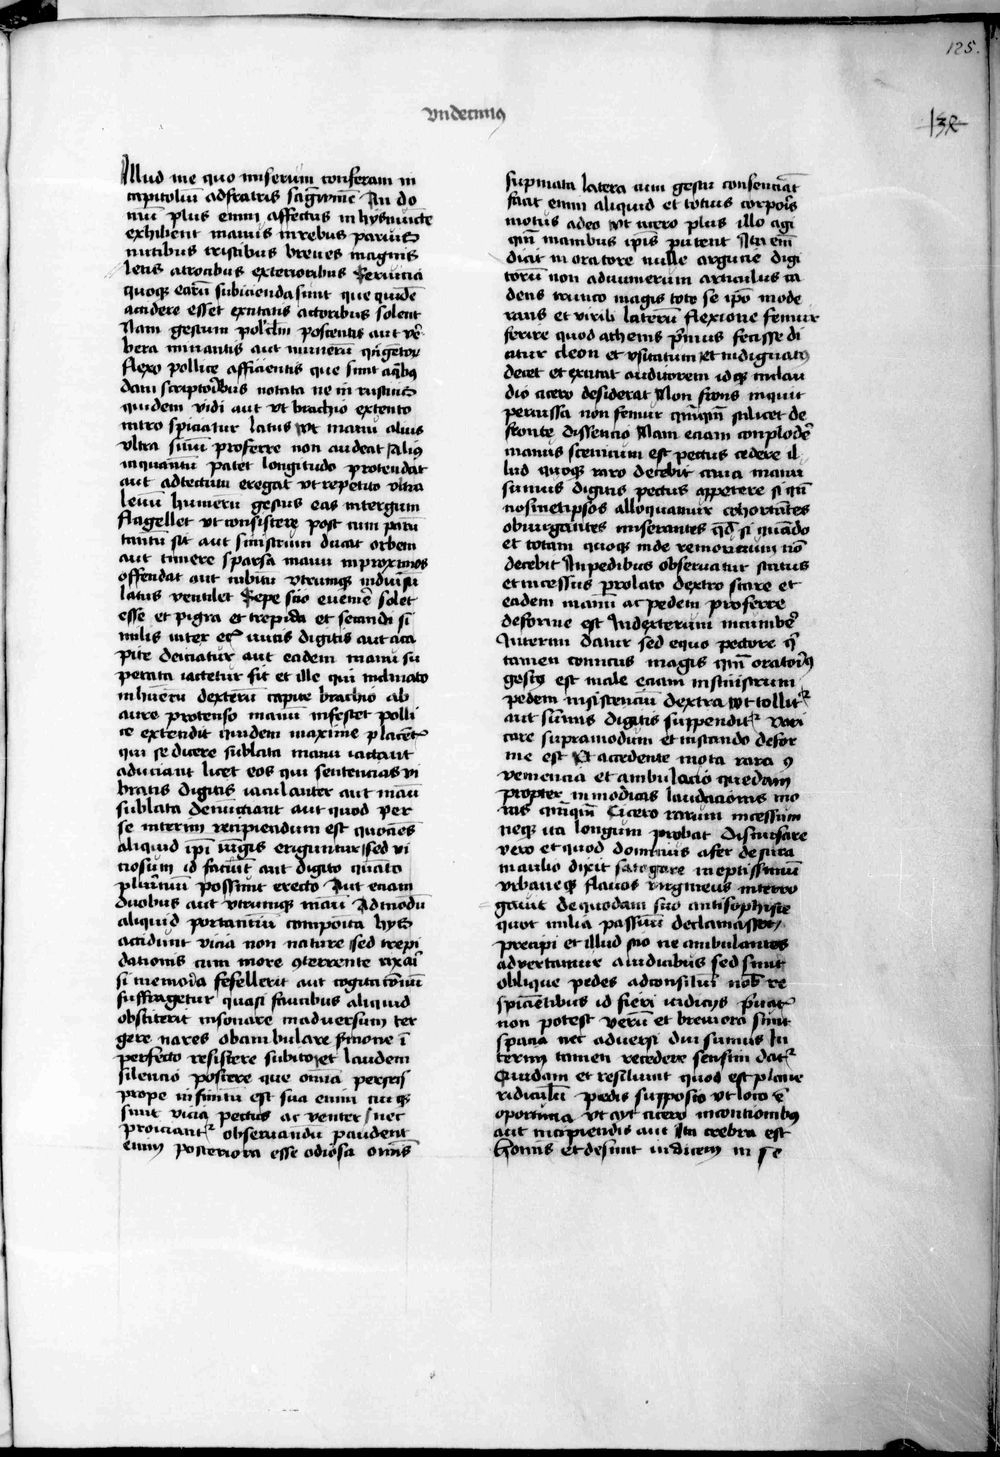 125.
Vndecimus
132
Illud me quo miserum conferam in
capitolium ad fratris sanguinem An do
mum plus enim affectus in hys mincte
exhibent manus in rebus paruis
mitibus tristibus breues magnis
letis atrocibus exterioribus Seruicia
quoque earum subicienda sunt que quidem
accidere esset exritatis actoribus solent
Nam gestum poculum poscentis aut ver
bera minantis aut numerum quingentorum
flexo pollice afficientis que sunt a quibus
dam scriptoribus notata ne in rusticis
quidem vidi aut vt brachio extento
intro spiciatur latus vt manu alius
vltra sinum proferre non audeat Alius
inquantum patet longitudo protendat
aut ad tectum eregat vt repetito vltra
leuum humerum gestus eas in tergum
flagellet vt consistere post eum parum
tantum sit aut sinistrum ducat orbem
aut timere sparsa manu in proximos
offendat aut cubitum vtrumque in diuersum
latus ventilet Sepe scio euenire solet
esse et pigra et trepida et secandi si
milis inter etiam vncis digitis aut a ca
pite deiciatur aut eadem manu su
perata iactetur fit et ille qui inclinato
in humerum dexterum capite brachio ab
aure protenso manum infestet polli
ce extendit quidem maxime placent
qui se dicere sublata manu iactant
adiciant licet eos qui sentencias vi
bratis digitis iaculantur aut manum
sublata denunciant aut quod per
se interim recipiendum est quociens
aliquid ipsi vnguis eriguntur sed vi
ciosum id faciunt aut digito quanto
plurimum possunt erecto Aut eciam
duobus aut vtrumque manu Ad modum
aliquid portantium composita hys
accidunt vicia non nature sed trepi
dationis cum more conterrente rixari
si memoria fefellerit aut cogitacio non
suffragetur quasi faucibus aliquid
obstiterit insonare in aduersum ter
gere nares obambulare sermone im
perfecto resistere subito et laudem
silencio poscere que omnia persequi
prope infinitum est sua enim cuique
sunt vicia pectus ac venter nec
proiciantur obseruandum pandent
enim posteriora esse odiosa omnis
supinata latera cum gestu consenciant
facit enim aliquid et totus corporis
motus adeo vt cicero plus illo agi
quam manibus ipsis putent Ita enim
dicit in oratore nulle argucie digi
torum non ad numerum articulus ca
dens trunco magis toto se ipso mode
rans et virili laterum flexione femur
ferire quod athenis primus fecisse di
citur cleon et vsitatum et indignatos
decet et excitat auditorem idque in clau
dio cicero desiderat Non frons inquit
percussa non femur quamquam scilicet de
fronte dissencio Nam eciam complodere
manus scenicum est pectus cedere il
lud quoque raro decebit caua manu
summis digitis pectus appetere si quando
nosmetipsos alloquamur cohortantes
obiurgantes miserantes quod si quando
et totam quoque inde remoriturum non
decebit In pedibus obseruatur status
et incessus prolato dextro stare et
eadem manum ac pedem proferre
deforme est In dexterum incumbere
Interim datur sed equo pectore qui
tamen comicus magis quam oratorius
gestus est male eciam in sinistrum
pedem insistencium dextra vt tollitur
aut summis digitis suspenditur Vari
care supra modum et in stando defor
me est Et accedente mota rara con
ueniencia et ambulacio quedam
propter inmodicas laudaciones mo
ras quamquam Cicero rarum incessum
neque ita longum probat Discursare
vero et quod domicius afer de sura
manlio dixit satogare ineptissimum
vrbaneque flauos virgineus interro
gauit de quodam suo antisophiste
quot milia passuum declamasset
precipi et illud scio ne ambulantes
aduertamur a iudicibus sed sunt
oblique pedes ad consilium nobis re
spicientibus id fieri iudicijs priuatis
non potest verum et breuiora sunt
spacia nec aduersi diu sumus In
terim tamen recedere sensim datur
Quidam et resiliunt quod est plane
ridiculum pedis supposio vt loco est
oportuna vt ayt cicero in contionibus
aut incipiendis aut Ita crebra est
homis et desinit iudicem in se